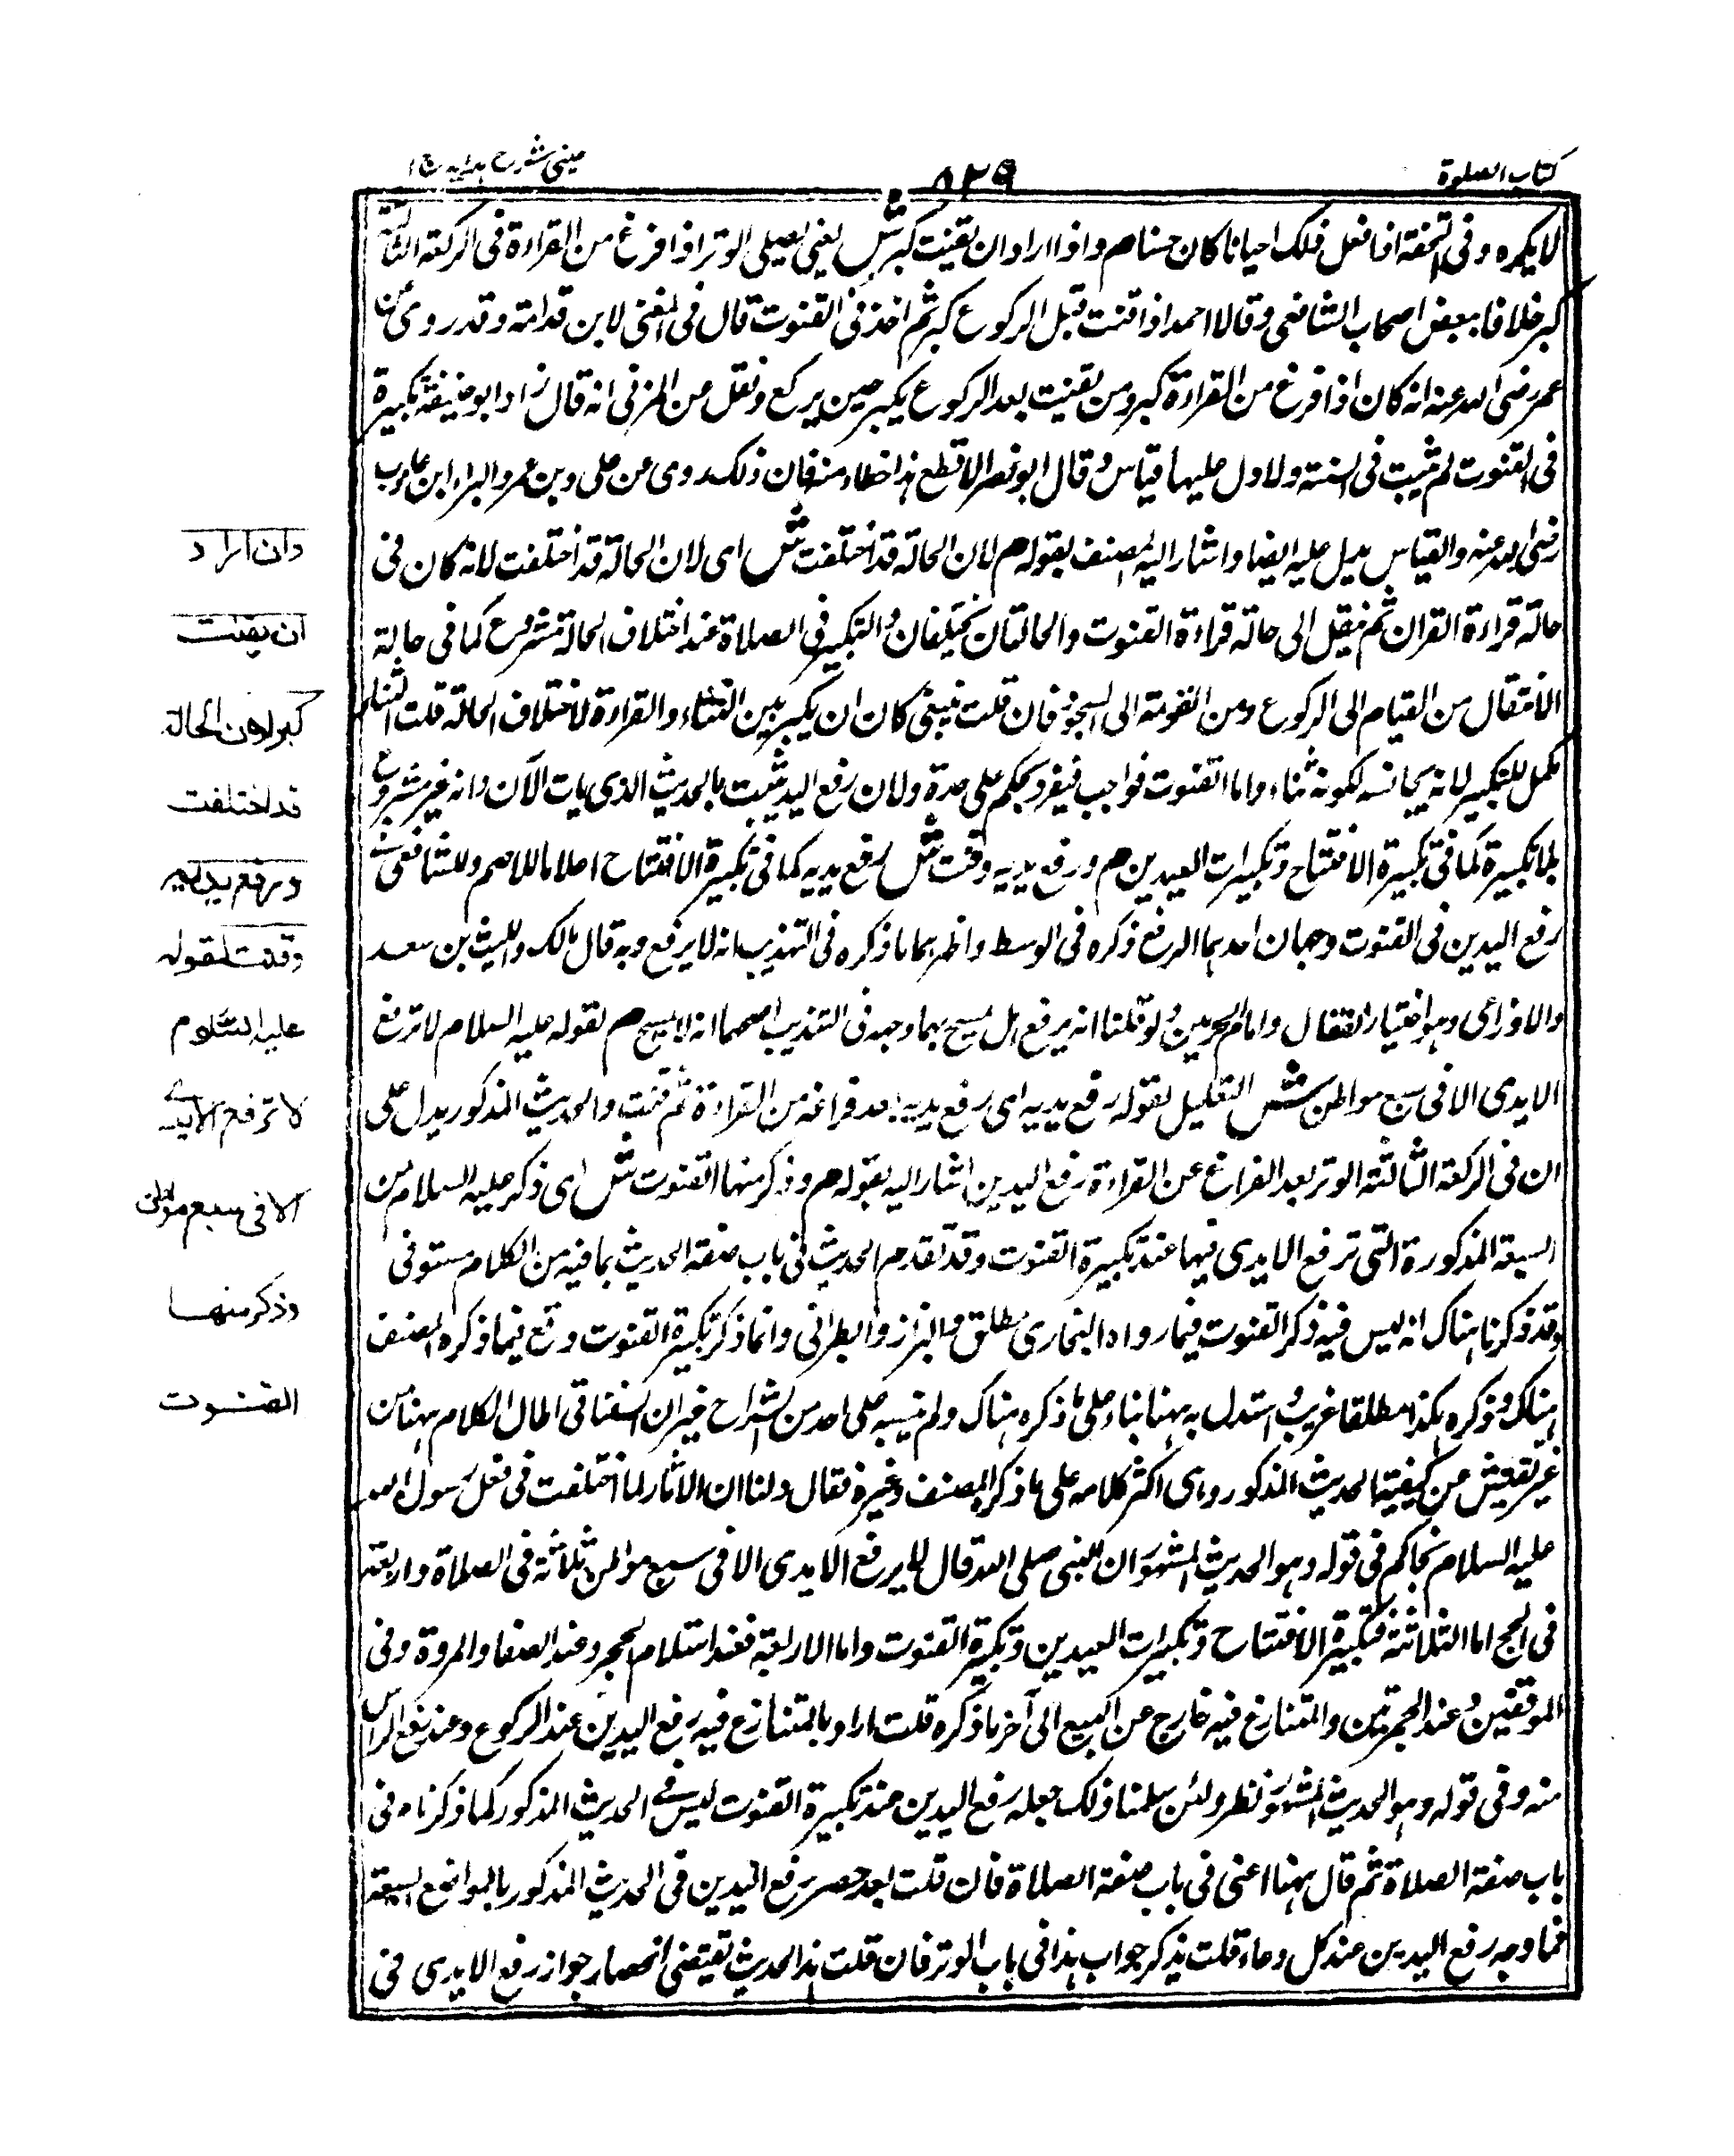 كتاب الصلوة
٨٢٩
عينى شرح هدايه ج ١
لا يكره وفى التحفة اذا فعل ذلك احيانا كان حسنا م واذا اراد ان يقنت كبر ش يعنى يصلى الوتر اذا فرغ من القراءة فى الركعة الثالثة
كبر خلافا لبعض اصحاب الشافعى وقالا احمد اذا قنت قبل الركوع كبر ثم اخذ فى القنوت قال فى المغنى لابن قدامة وقد روى عن
عمر رضى الله عنه انه كان اذا فرغ من القراءة كبر ومن يقنت بعد الركوع يكبر حين يركع ونقل عن المزنى انه قال زاد ابو حنيفة تكبيرة
فى القنوت لم تثبت فى السنة ولا دل عليها قياس وقال ابو نصر الاقطع هذا خطاء منه فان ذلك روى عن على وبن عمر والبراء ابن عازب
رضى الله عنه والقياس يدل عليه ايضا واشار اليه المصنف بقوله م لان الحالة قد اختلفت ش اى لان الحالة قد اختلفت لانه كان فى
حالة قراءة القران ثم ينتقل الى حالة قراءة القنوت والحالتان مختلفان والتكبير فى الصلاة عند اختلاف الحالة مشروع كما فى حالة
الانتقال من القيام الى الركوع ومن القومة الى السجود فان قلت ينبغى كان ان يكبر بين الثناء والقراءة لاختلاف الحالة قلت الثناء
مكمل للتكبير لانه يجانسه لكونه ثناء واما القنوت فواجب فيفرد بحكم على حدة ولان رفع اليد ثبت بالحديث الذى يات الآن وانه غير مشروع
بلا تكبيرة كما فى تكبيرة الافتتاح وتكبيرات العيدين م ورفع يديه وقنت ش رفع يديه كما فى تكبيرة الافتتاح اعلاما للاصم وللشافعى فى
رفع اليدين فى القنوت وجهان احدهما الرفع ذكره فى الوسط واظهرهما ما ذكره فى التهذيب انه لا يرفع وبه قال مالك والليث بن سعد
والاوزاعى وهو اختيار القفال وامام الحرمين ولو قلنا انه يرفع هل يمسح بهما وجهه فى التهذيب اصحهما انه لا يمسح م لقوله عليه السلام لا ترفع
الايدى الا فى سبع مواطن ش التعليل لقوله رفع يديه اى رفع يديه بعد فراغه من القراءة ثم قنت والحديث المذكور يدل على
ان فى الركعة الثالثة الوتر بعد الفراغ عن القراءة رفع اليدين اشار اليه بقوله م وذكر منها القنوت ش اى ذكر عليه السلام من
السبعة المذكورة التى ترفع الايدى فيها عند تكبيرة القنوت وقد تقدم الحديث فى باب صفة الحديث بما فيه من الكلام مستوفى
وقد ذكرنا هناك انه ليس فيه ذكر القنوت فيما رواه البخارى مطلق والبزاز والطبرانى وانما ذكر تكبيرة القنوت وقع فيما ذكره المصنف
هناك وذكره هكذا مطلقا غريب واستدل به ههنا بناء على ما ذكره هناك ولم ينبه على احد من الشراح غير ان السغناقى اطال الكلام ههنا من
غير تفتيش عن كيفية الحديث المذكور وادى اكثر كلامه على ما ذكر المصنف وغيره فقال ولنا ان الاثار لما اختلفت فى فعل رسول الله
عليه السلام نحاكم فى قوله وهو الحديث المشهور ان النبى صلى الله قال لا يرفع الايدى الا فى سبع مواطن ثلاثة فى الصلاة واربعة
فى الحج اما الثلاثة فتكبيرة الافتتاح وتكبيرات العيدين وتكبيرة القنوت واما الاربعة فعند استلام الحجر وعند الصفا والمروة وفى
الموقفين وعند الجمرتين والمتنازع فيه خارج عن السبع الى آخر ما ذكره قلت اراد بالمتنازع فيه رفع اليدين عند الركوع وعند رفع الراس
منه وفى قوله وهو الحديث المشهور نظر ولئن سلمنا ذلك جعله رفع اليدين عند تكبيرة القنوت ليس فى الحديث المذكور كما ذكرناه فى
باب صفة الصلاة ثم قال ههنا اعنى فى باب صفة الصلاة فان قلت بعد حصر رفع اليدين فى الحديث المذكور بالمواضع السبعة
فما وجه رفع اليدين عند كل دعاء قلت يذكر جواب هذا فى باب الوتر فان قلت هذا الحديث يقتضى انحصار جواز رفع الايدى فى
وان اراد
ان يقنت
كبر لان الحالة
قد اختلفت
ورفع يديه
وقنت لقوله
عليه السلام
لا ترفع الايدى
الا فى سبع مواطن
وذكر منها
القنوت